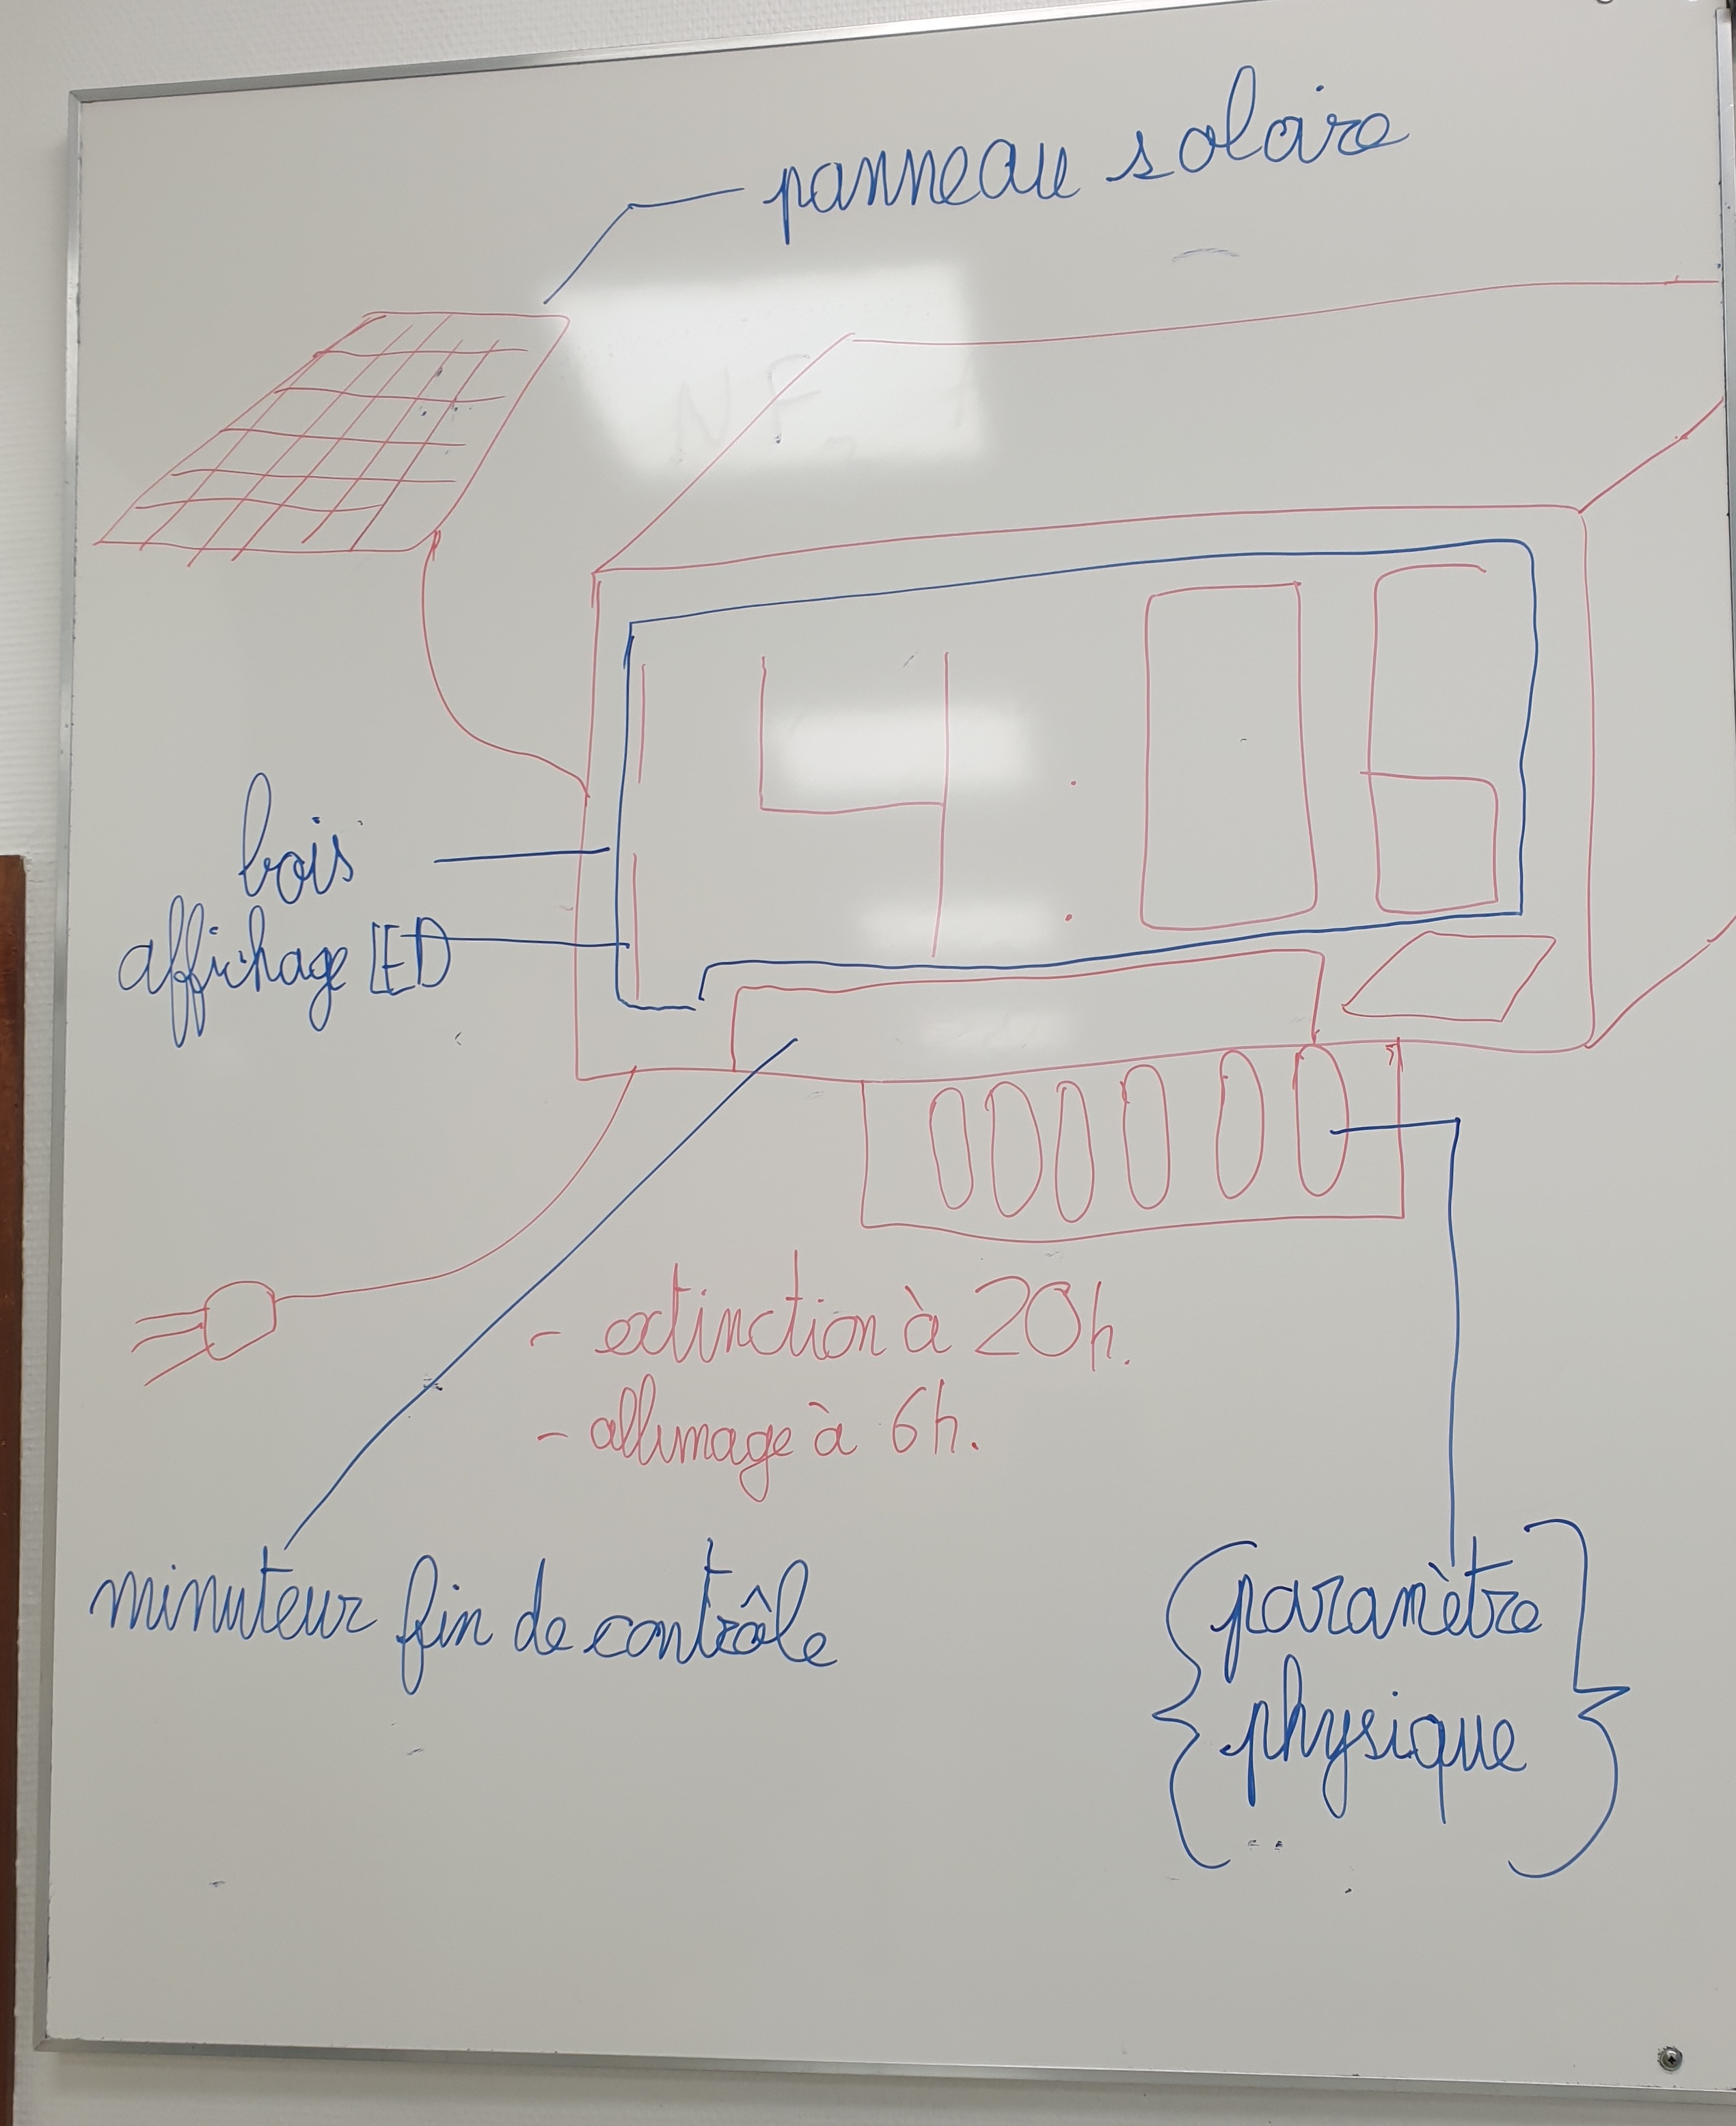 panneau solaire
14:06
bois
affichage LED
- extinction à 20h.
- allumage à 6h.
minuteur fin de contrôle
paramètre
physique